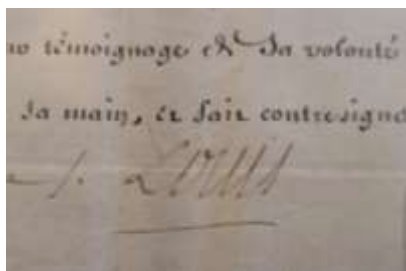 témoignage de Sa volonté
sa main, et fait contresigne
Louis